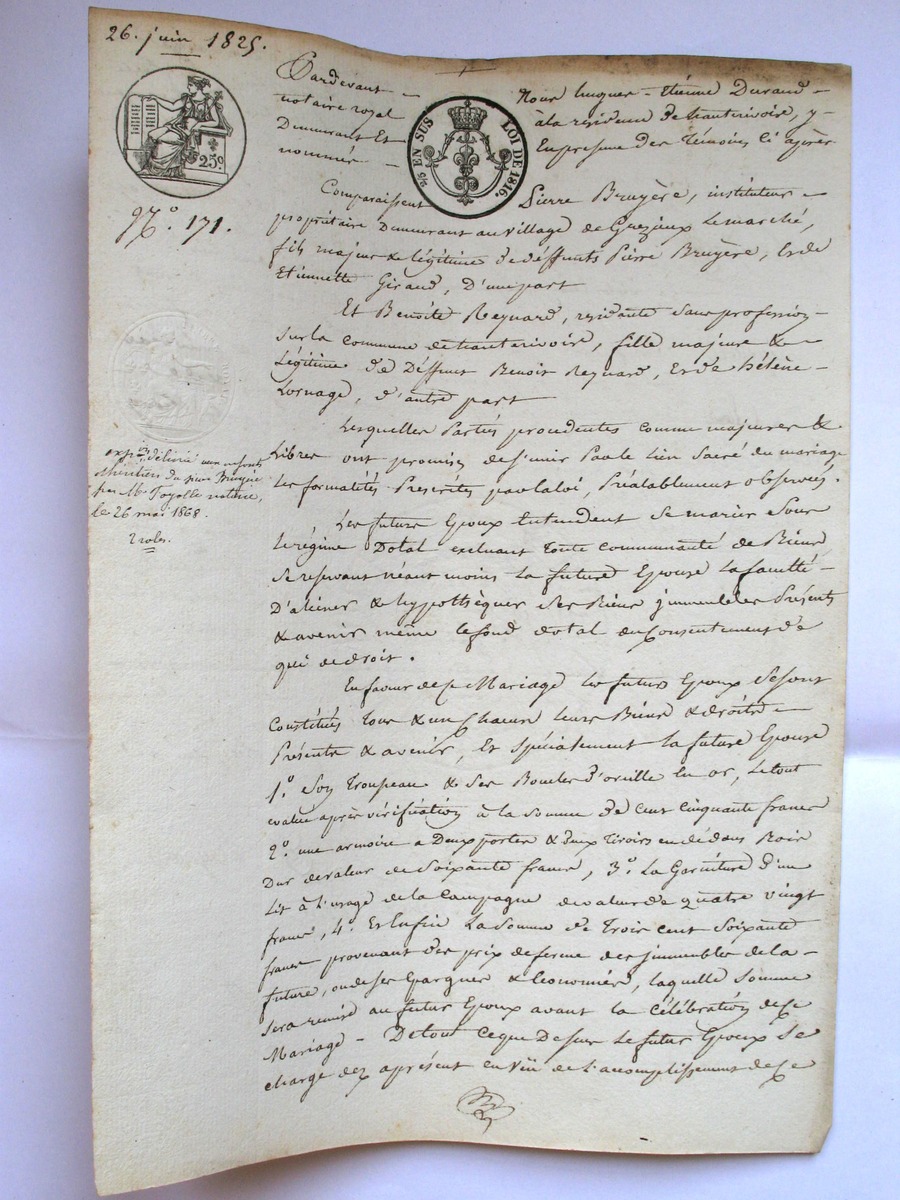 26. juin 1825.
Pardevant Nous hugues-Etienne Durand
notaire royal à la residence de hauterivoire, y
Demeurant Et En presence des Témoins ci après
nommés
25c
2/5 EN SUS
LOI DE 1816.
N.º 171.
Comparaissent Pierre Bruyère, instituteur
propriétaire Demeurant au village de Lemarché,
fils majeur & légitime de déffunts Pierre Bruyère, & de
Etiennette Giraud, D'une part
Et Benoîte Reynard, residante sans profession
sur la commune de hauterivoire, fille majeure &
Légitime de Déffunt Benoit Reynard, & de hélène
Lornage, d'autre part
Lesquelles Parties procedentes comme majeures &
Libres ont promis de s'unir Par le lien Sacré du mariage
Les formalités Prescrites par la loi, Préalablement observées.
Les futurs Epoux Entendent se marier sous
le régime Dotal excluant toute communauté de Biens
se reservant néant moins la future Epouse la faculté
D'aliéner & hypothèquer ses Biens jmmeubles Présents
& avenir même le fond dotal du Consentement de
qui de droit.
En faveur de Ce Mariage les futurs Epoux se sont
Constitués tous & un Chacun leurs Biens & droits
Présents & avenir, Et spécialement la future Epouse
1.º Son Troupeau & ses Boucles d'oreille En or, Le tout
évalué après vérification à la somme de cent cinquante francs
2.º une armoire a Deux portes & deux Tiroirs en dédans Bois
Dur de valeur de Soixante francs, 3.º La Garniture d'un
Lit à l'usage de la Campagne de valeur de quatre vingt
francs, 4.º Et Enfin La Somme de Trois cent Soixante
francs provenant des prix de ferme des jmmeubles de la
future, ou de ses Epargnes & Economies, laquelle somme
sera remise au futur Epoux avant la Célébration de Ce
Mariage - De tout Ce que Dessus le futur Epoux se
charge dez aprésent en vüe de l'accomplissement de Ce
exp.on délivré aux enfants
héritiers du sieur Bruyère
par Me Fayolle notaire,
le 26 mai 1868.
2 roles.